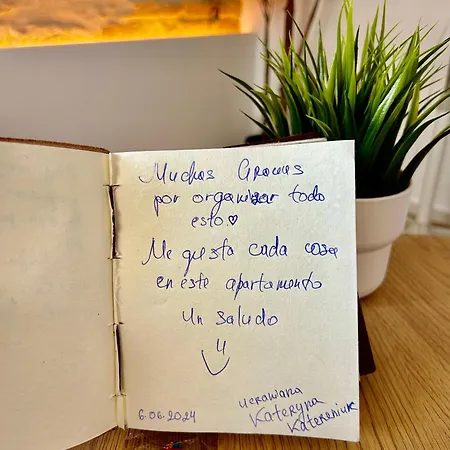 Muchas Gracias
por organizar todo
esto♡
Me gusta cada cosa
en este apartamento
Un saludo
6.06.2024
ucrowana
Kateryna
Katereniuk